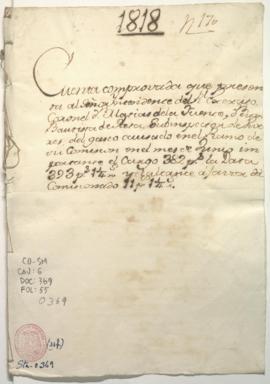 1818
N 170
Cuenta comprovada que presen
ta al Señor Intendente del Exercito
Coronel Dn Matias de la Fuente, Dn Juan
Bautista de
del gasto causado en el Ramo de
su Comision en el mes de Junio im
portante el Cargo 382 ps la Data
393 ps 1½ rs y el alcance a favor de
Comisionado 11 ps 1½ rs
CO-SM
CAJ: 6
DOC: 369
FOL: 55
0369
Sta-0369